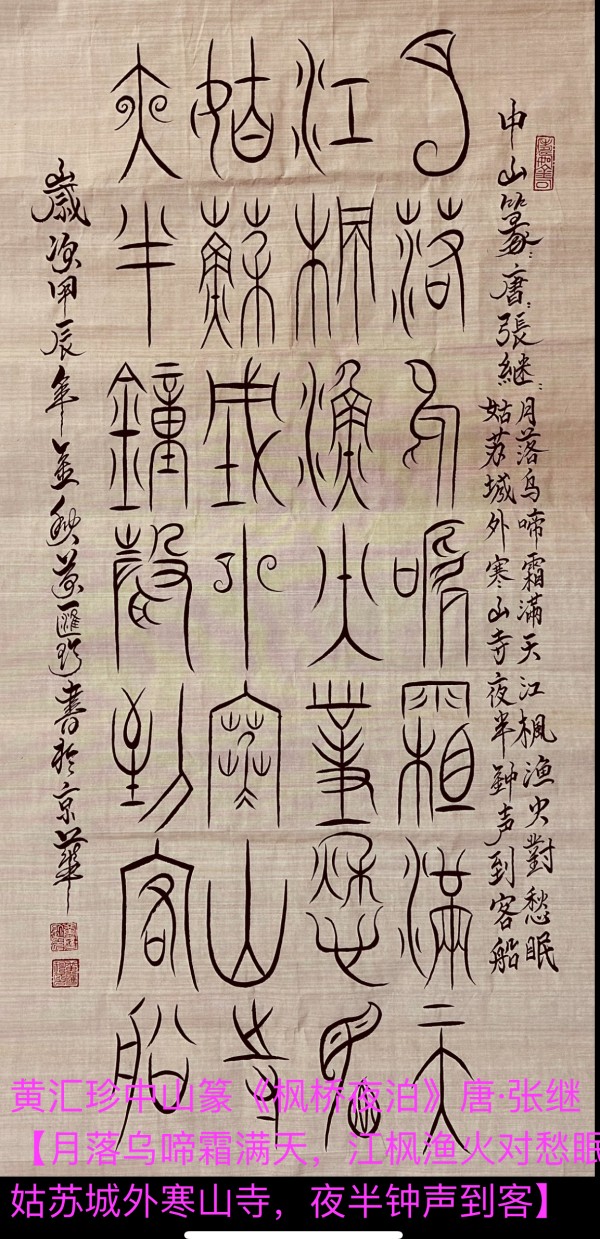 中山篆:唐:張継:
月落乌啼霜滿天江楓渔火對愁眠
姑苏城外寒山寺夜半鈡声到客船
月落烏啼霜滿天
江楓漁火對愁眠
姑蘇城外寒山寺
夜半鐘聲到客船
歲次甲辰年孟秋黃匯珍書於京華
黄汇珍中山篆《枫桥夜泊》唐·张继
【月落乌啼霜满天，江枫渔火对愁眠
姑苏城外寒山寺，夜半钟声到客】